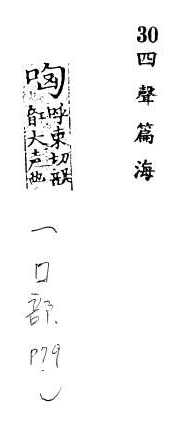 30四聲篇海
哅
呼東切
大声也
（口部. P79）